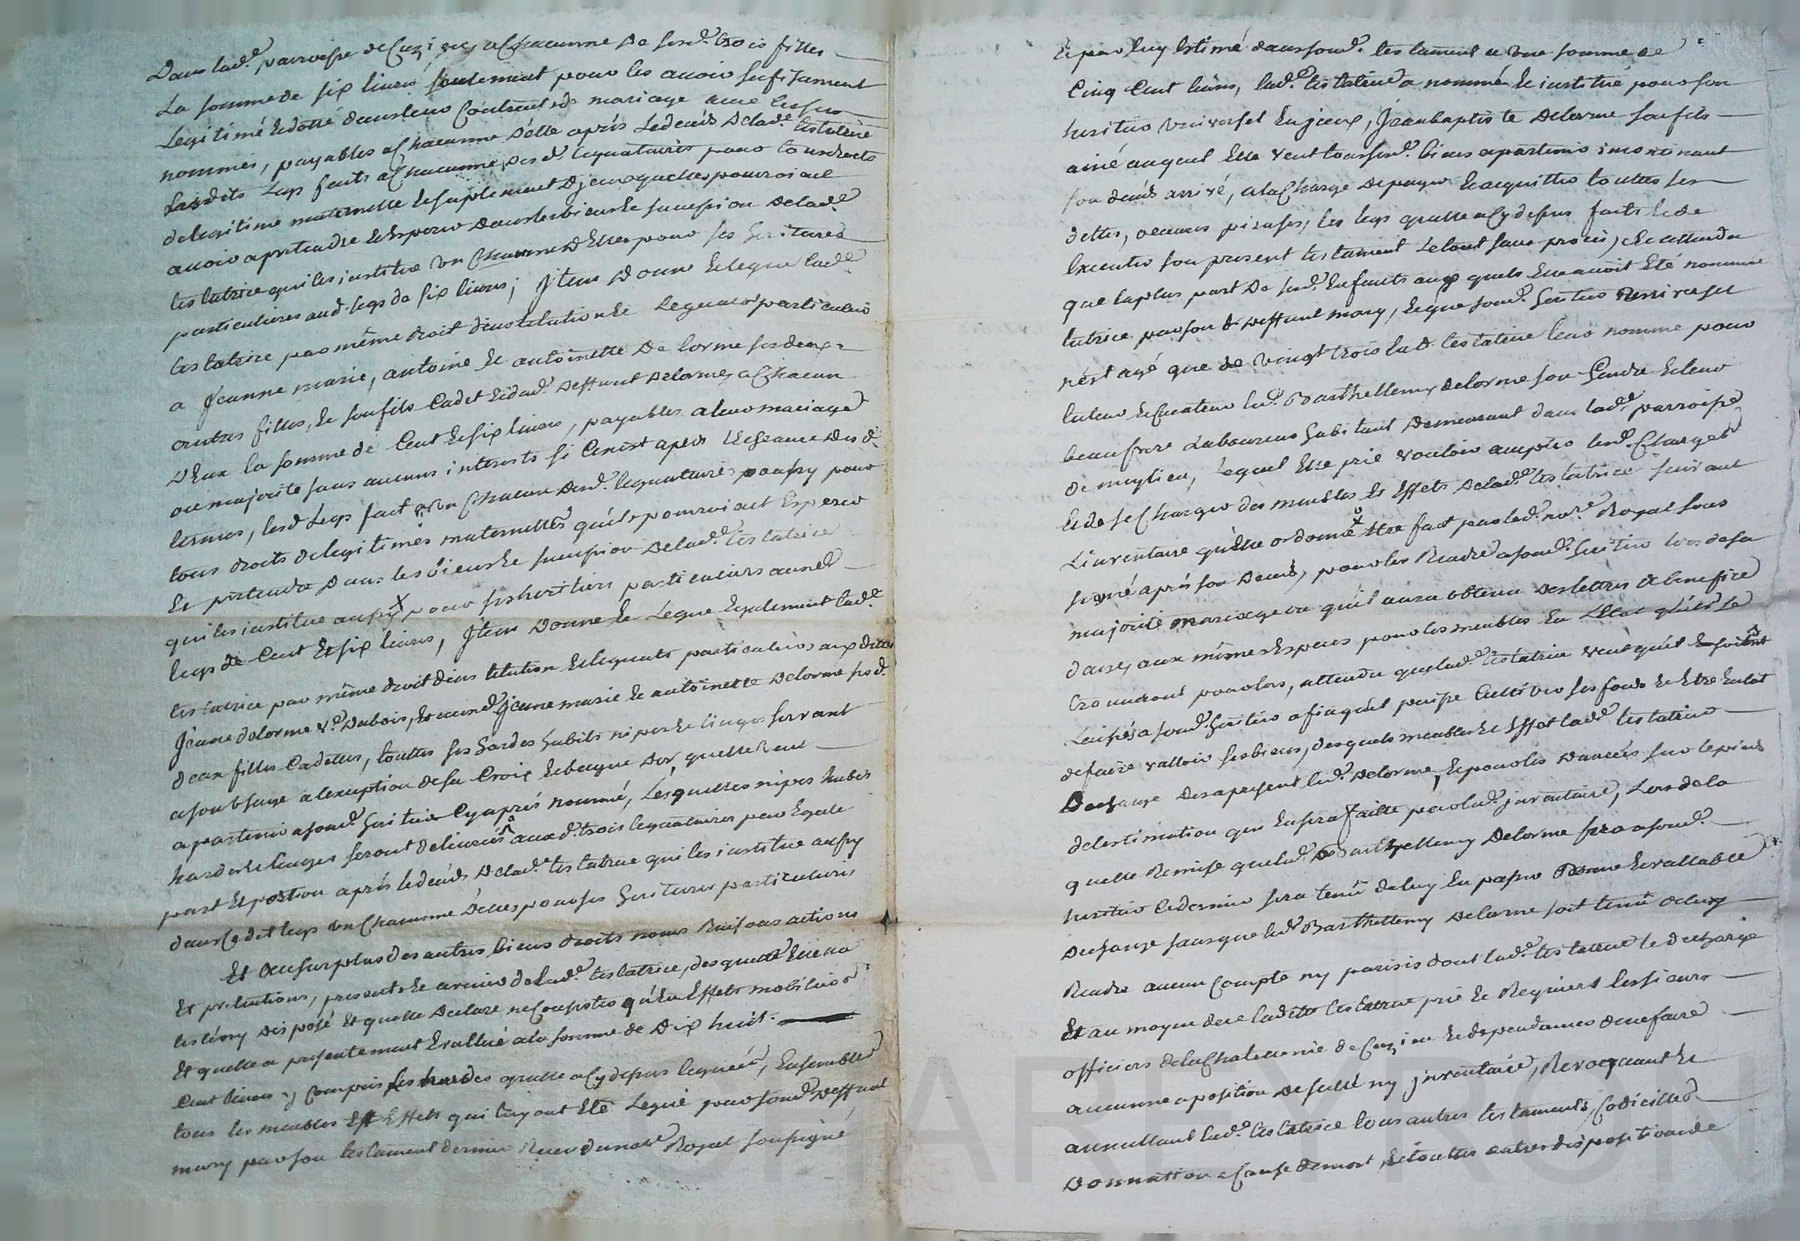 Dans lad.e parroisse de Cuzieu, a Chacunne de sesd. trois filles
La somme de six livres seulement pour les avoir sufisament
Legitimé et dotté dans leur Contract de mariage avec
nommés, payables a Chacunne d'elle après le décès de lad.e testatrice
Lesdits Legs faits a Chacunne desd. legnataires pour tous droits
de legitime maternelle et suplement d'jceux quelles pourroient
avoir a pretendre et Esperer dans les biens et succession de lad.e
testatrice qui les institue un Chacunne d'Elles pour ses heritieres
particulieres aud. legs de six livres; Jtem donne et legue lad.e
testatrice par même droit d'institution et legnat particulier
a Jeanne marie, antoine et antoinette Delorme ses deux
autres filles, et son fils Cadet et dud. deffunt Delorme, a Chacun
d'Eux la somme de Cent et six livres, payables a leur mariage
ou majorité sans aucuns interests si Cen'est après l'Echeance desd.
termes, lesd. Legs fait a un Chacun desd. legnataires pour
tous droits de legitimes maternelles qu'ils pourroient Esperer
et pretendre dans les biens et succession de lad.e testatrice
qui les institue aussy pour ses heritiers particuliers aud.
legs de Cent et six livres, Jtem donne et Legue Egalement lad.e
testatrice par même droit d'institution et legnat particulier aux dites
Jeanne delorme v.e Dubois, et aux d. Jeanne marie et antoinette Delorme ses d.
deux filles Cadettes, touttes ses hardes habits nipes et linges servant
a son usage a l'exception de sa Croix et bague d'or, quelle veut
apartenir a son d. heritier Cy après nommé, Lesquelles nipes habis
hardes et linges seront delivrées aux d. trois legnataires par Egale
part et portion après le décès de lad.e testatrice qui les institue aussy
dans Cedit legs un Chacunne d'elles pour ses heritieres particulieres
Et au surplus des autres biens droits noms Raisons actions
Et pretentions, presents et avenir de lad.e testatrice, desquels Elle n'a
testé ny disposé Et quelle declare ne Consister qu'En Effets mobiliers
Et quelle a presentement Evallué a la somme de dix huit
Cent livres y Compris les hardes quelle a cy dessus leguées, Ensemble
tous les meubles Et Effets qui luy ont Eté Legué par son d. deffunt
mary par son testament dernier Recu du not.e Royal soussigné
Et par luy Estimé dans son d. testament a une somme de
Cinq Cent livres, lad.e testatrice a nommé et institué pour son
heritier universel En jceux, Jean baptiste Delorme son fils
ainé auquel Elle veut tous sesd. biens apartenir incontinant
son décès arrivé, a la Charge de payer et acquitter touttes ses
dettes, œuvres pieuses, les legs quelle a Cy dessus faits et de
Executer son present testament le tout sans procès; et attendu
que la plus part de sesd. Enfants aux quels Elle avoit Eté nommée
tutrice par son d. deffunt mary, et que son d. heritier universel
n'est agé que de vingt trois lad.e testatrice leur nomme pour
tuteur et Curateur led. Barthellemy delorme son
beaufrere Laboureur habitant demeurant dans lad.e parroisse
de meylieu, lequel Elle prie vouloir accepter lesd. Charges
Et de se Charger des meubles et Effets de lad.e testatrice suivant
L'inventaire qu'Elle ordonne être fait par led. no.re Royal sous
signé après son décès, pour les Rendre a son d. heritier lors de sa
majorité mariage ou qu'il aura obtenu des lettres de benefice
d'age, aux mêmes Especes pour les meubles En L'Etat qu'ils se
trouveront pour lors, attendu que lad.e testatrice veut qu'ils soient
Laissés a son d. heritier afin qu'il puisse Cultiver ses fonds et Etre En Etat
de faire valloir ses biens, desquels meubles et Effet lad.e testatrice
decharge des a present led. Delorme, et pour les danrées sur le pied
de lestimation qui En sera faitte par led. jnventaire, Lors de la
quelle Remise que led. Barthellemy Delorme fera a son d.
heritier Ce dernier sera tenu de luy En passer bonne et vallable
decharge sans que led. Barthellemy Delorme soit tenu de luy
Rendre aucun Compte ny dont lad.e testatrice le decharge
Et au moyen de ce ladite testatrice prie et Requiert les sieurs
officiers de la Chatelenie de Cuzieu et dependances de ne faire
aucunne aposition de scellé ny jnventaire, Revocquant et
annullant lad.e testatrice tous autres testaments, Codicilles
donnation a Cause de mort et touttes autres dispositions de